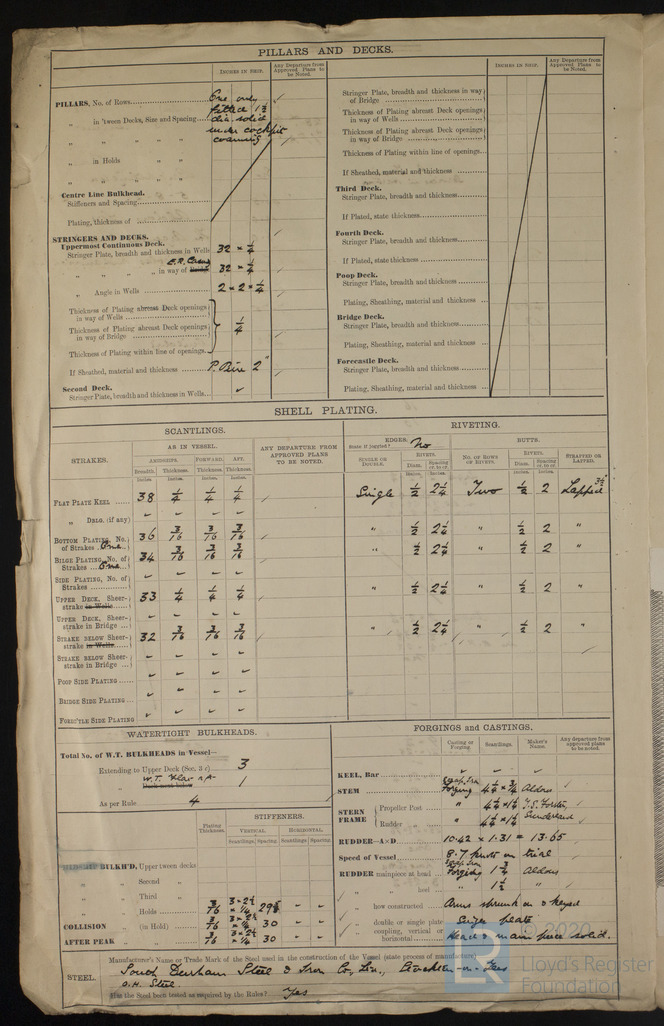 PILLARS AND DECKS.
INCHES IN SHIP.
Any Departure from Approved Plans to be Noted.
PILLARS, No. of Rows
One only
" in 'tween Decks, Size and Spacing
fitted 1 3/4 dia. solid
under cockpit
coaming
" in Holds " "
Centre Line Bulkhead.
Stiffeners and Spacing
Plating, thickness of
STRINGERS AND DECKS.
Uppermost Continuous Deck.
Stringer Plate, breadth and thickness in Wells 32 × 1/4
" " " " in way of Bridge E.R. Casing 32 × 1/4
" Angle in Wells 2 × 2 × 1/4
Thickness of Plating abreast Deck openings in way of Wells
Thickness of Plating abreast Deck openings in way of Bridge 1/4
Thickness of Plating within line of openings
If Sheathed, material and thickness P. Pine 2"
Second Deck.
Stringer Plate, breadth and thickness in Wells
INCHES IN SHIP.
Any Departure from Approved Plans to be Noted.
Stringer Plate, breadth and thickness in way of Bridge
Thickness of Plating abreast Deck openings in way of Wells
Thickness of Plating abreast Deck openings in way of Bridge
Thickness of Plating within line of openings
If Sheathed, material and thickness
Third Deck.
Stringer Plate, breadth and thickness
If Plated, state thickness
Fourth Deck.
Stringer Plate, breadth and thickness
If Plated, state thickness
Poop Deck.
Stringer Plate, breadth and thickness
Plating, Sheathing, material and thickness
Bridge Deck.
Stringer Plate, breadth and thickness
Plating, Sheathing, material and thickness
Forecastle Deck.
Stringer Plate, breadth and thickness
Plating, Sheathing, material and thickness
SHELL PLATING.
SCANTLINGS.
RIVETING.
STRAKES.
AS IN VESSEL.
AMIDSHIPS. FORWARD. AFT.
Breadth. Thickness. Thickness. Thickness.
Inches. Inches. Inches. Inches.
ANY DEPARTURE FROM APPROVED PLANS TO BE NOTED.
EDGES.
State if joggled? No
SINGLE OR DOUBLE.
RIVETS.
Diam. Spacing cr. to cr.
Inches. Inches.
BUTTS.
No. OF ROWS OF RIVETS.
RIVETS.
Diam. Spacing cr. to cr.
Inches. Inches.
STRAPPED OR LAPPED.
FLAT PLATE KEEL 38 1/4 1/4 1/4 Single 1/2 2 1/4 Two 1/2 2 Lapped 3 1/2"
" DBLG. (if any)
BOTTOM PLATING, No. of Strakes One 36 3/16 3/16 3/16 " 1/2 2 1/4 " 1/2 2 "
BILGE PLATING, No. of Strakes One 34 3/16 3/16 3/16 " 1/2 2 1/4 " 1/2 2 "
SIDE PLATING, No. of Strakes
UPPER DECK, Sheerstrake in Wells 33 1/4 1/4 1/4 " 1/2 2 1/4 " 1/2 2 "
UPPER DECK, Sheerstrake in Bridge
STRAKE BELOW Sheerstrake in Wells 32 3/16 3/16 3/16 " 1/2 2 1/4 " 1/2 2 "
STRAKE BELOW Sheerstrake in Bridge
POOP SIDE PLATING
BRIDGE SIDE PLATING
FORECTLE SIDE PLATING
WATERTIGHT BULKHEADS.
Total No. of W.T. BULKHEADS in Vessel—
Extending to Upper Deck (Sec. 3 c) 3
W.T. Flat
Deck next below 1
As per Rule 4
Plating Thickness.
STIFFENERS.
VERTICAL. HORIZONTAL.
Scantlings. Spacing Scantlings. Spacing
MIDSHIP BULKH'D, Upper tween decks
" Second "
" Third "
" Holds 3/16 3 × 2 1/2 × 1/4
COLLISION " (in Hold) 3/16 3 × 2 1/2 × 1/4 30
AFTER PEAK " 3/16 3 × 2 1/2 × 1/4 30
FORGINGS and CASTINGS.
Casting or Forging. Scantlings. Maker's Name. Any departure from approved plans to be noted.
KEEL, Bar
STEM Scrap Iron Forging
STERN FRAME
Propeller Post " T.S. Forster
Rudder " " Sunderland
RUDDER—A×D 10.42 × 1.31 = 13.65
Speed of Vessel 8.7 knots on trial
RUDDER mainpiece at head Scrap Iron Forging 1 3/4
" " heel " 1 1/2 "
" how constructed Arms shrunk on & keyed
" double or single plate Single plate
" coupling, vertical or horizontal Head & main piece solid.
STEEL.
Manufacturer's Name or Trade Mark of the Steel used in the construction of the Vessel (state process of manufacture)
South Durham Steel & Iron Co., Lim., Stockton-on-Tees
O.H. Steel.
Has the Steel been tested as required by the Rules? Yes
© 2020
LR
Lloyd's Register
Foundation